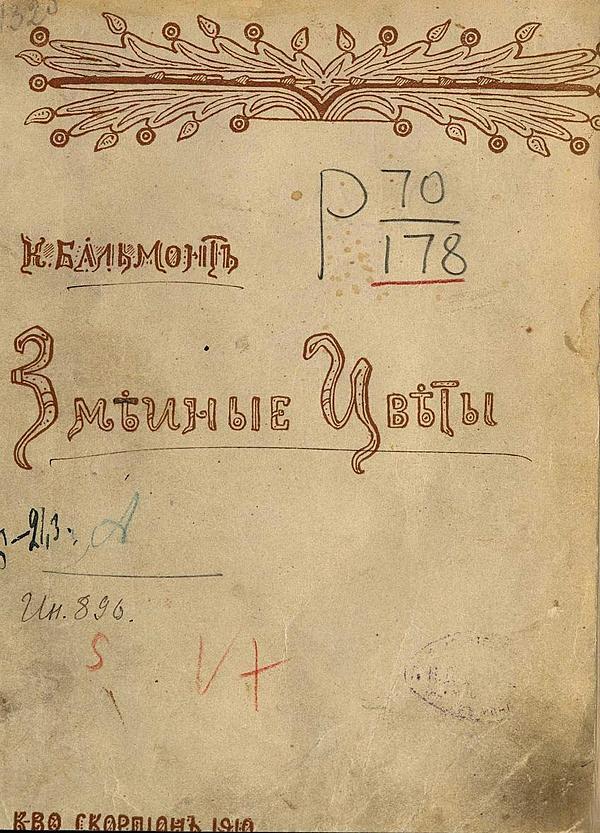 1323
Р 70
178
К. БАЛЬМОНТЪ
Змѣиные Цвѣты
Ин. 896.
S V+
К-ВО СКОРПІОНЪ 1910